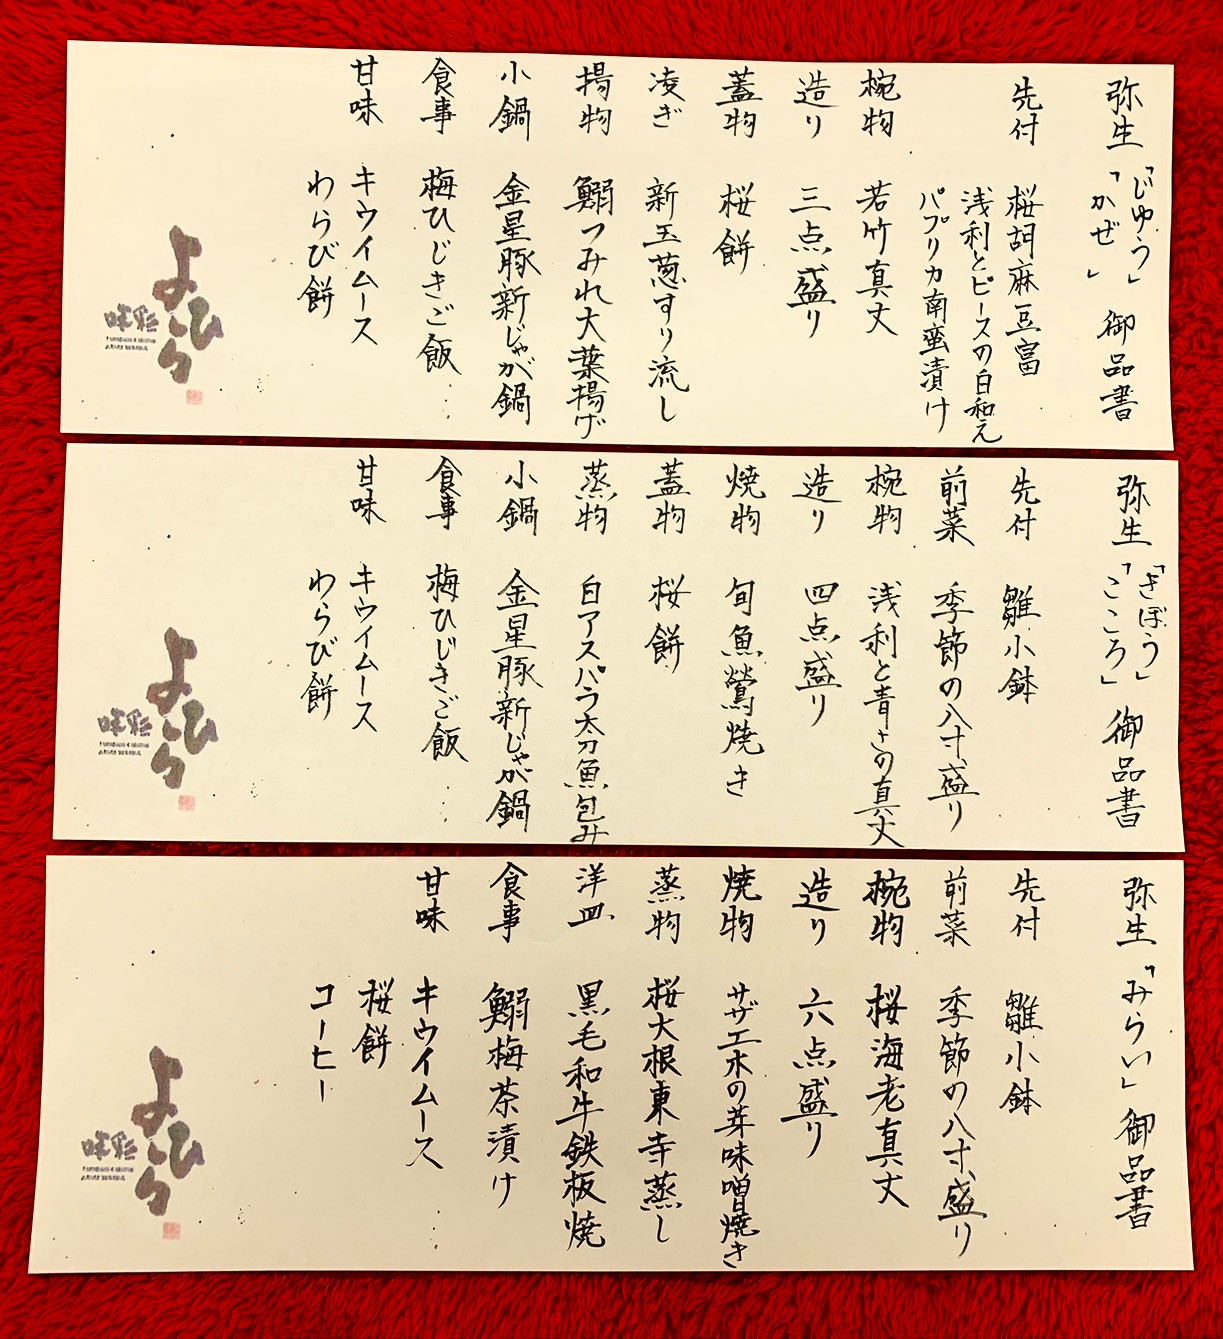 弥生「じゆう」「かぜ」御品書
先付 桜胡麻豆富
浅利とピースの白和え
パプリカ南蛮漬け
椀物 若竹真丈
造り 三点盛り
蓋物 桜餅
凌ぎ 新玉葱すり流し
揚物 鰯つみれ大葉揚げ
小鍋 金星豚新じゃが鍋
食事 梅ひじきご飯
甘味 キウイムース
わらび餅
よひら
弥生「きぼう」「こころ」御品書
先付 雛小鉢
前菜 季節の八寸盛り
椀物 浅利と青さの真丈
造り 四点盛り
焼物 旬魚鶯焼き
蓋物 桜餅
蒸物 白アスパラ太刀魚包み
小鍋 金星豚新じゃが鍋
食事 梅ひじきご飯
甘味 キウイムース
わらび餅
よひら
弥生「みらい」御品書
先付 雛小鉢
前菜 季節の八寸盛り
椀物 桜海老真丈
造り 六点盛り
焼物 サザエ木の芽味噌焼き
蒸物 桜大根東寺蒸し
洋皿 黒毛和牛鉄板焼
食事 鰯梅茶漬け
甘味 キウイムース
桜餅
コーヒー
よひら